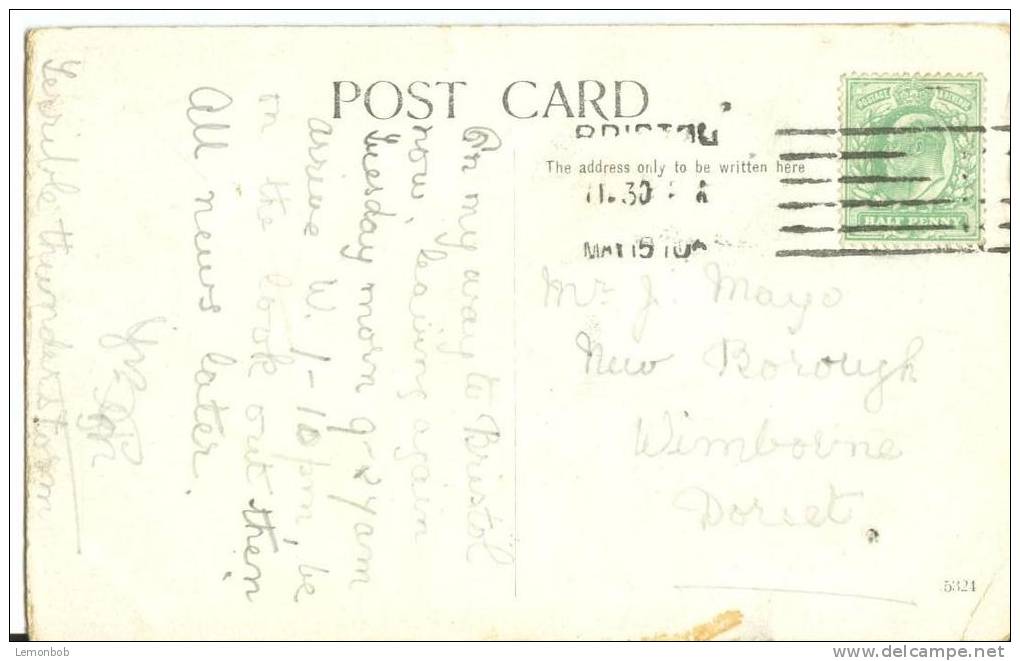 POST CARD
BRISTOL
The address only to be written here
11.30 P
MAY 15 10
POSTAGE REVENUE
HALF PENNY
Mr J. Mayo
New Borough
Wimborne
Dorset.
5324
On my way to Bristol
now, leaving again
Tuesday morn 9-27am
arrive W. 1-10pm be
on the look out then
All news later.
Terrible thunderstorm
Lemonbob
www.delcampe.net